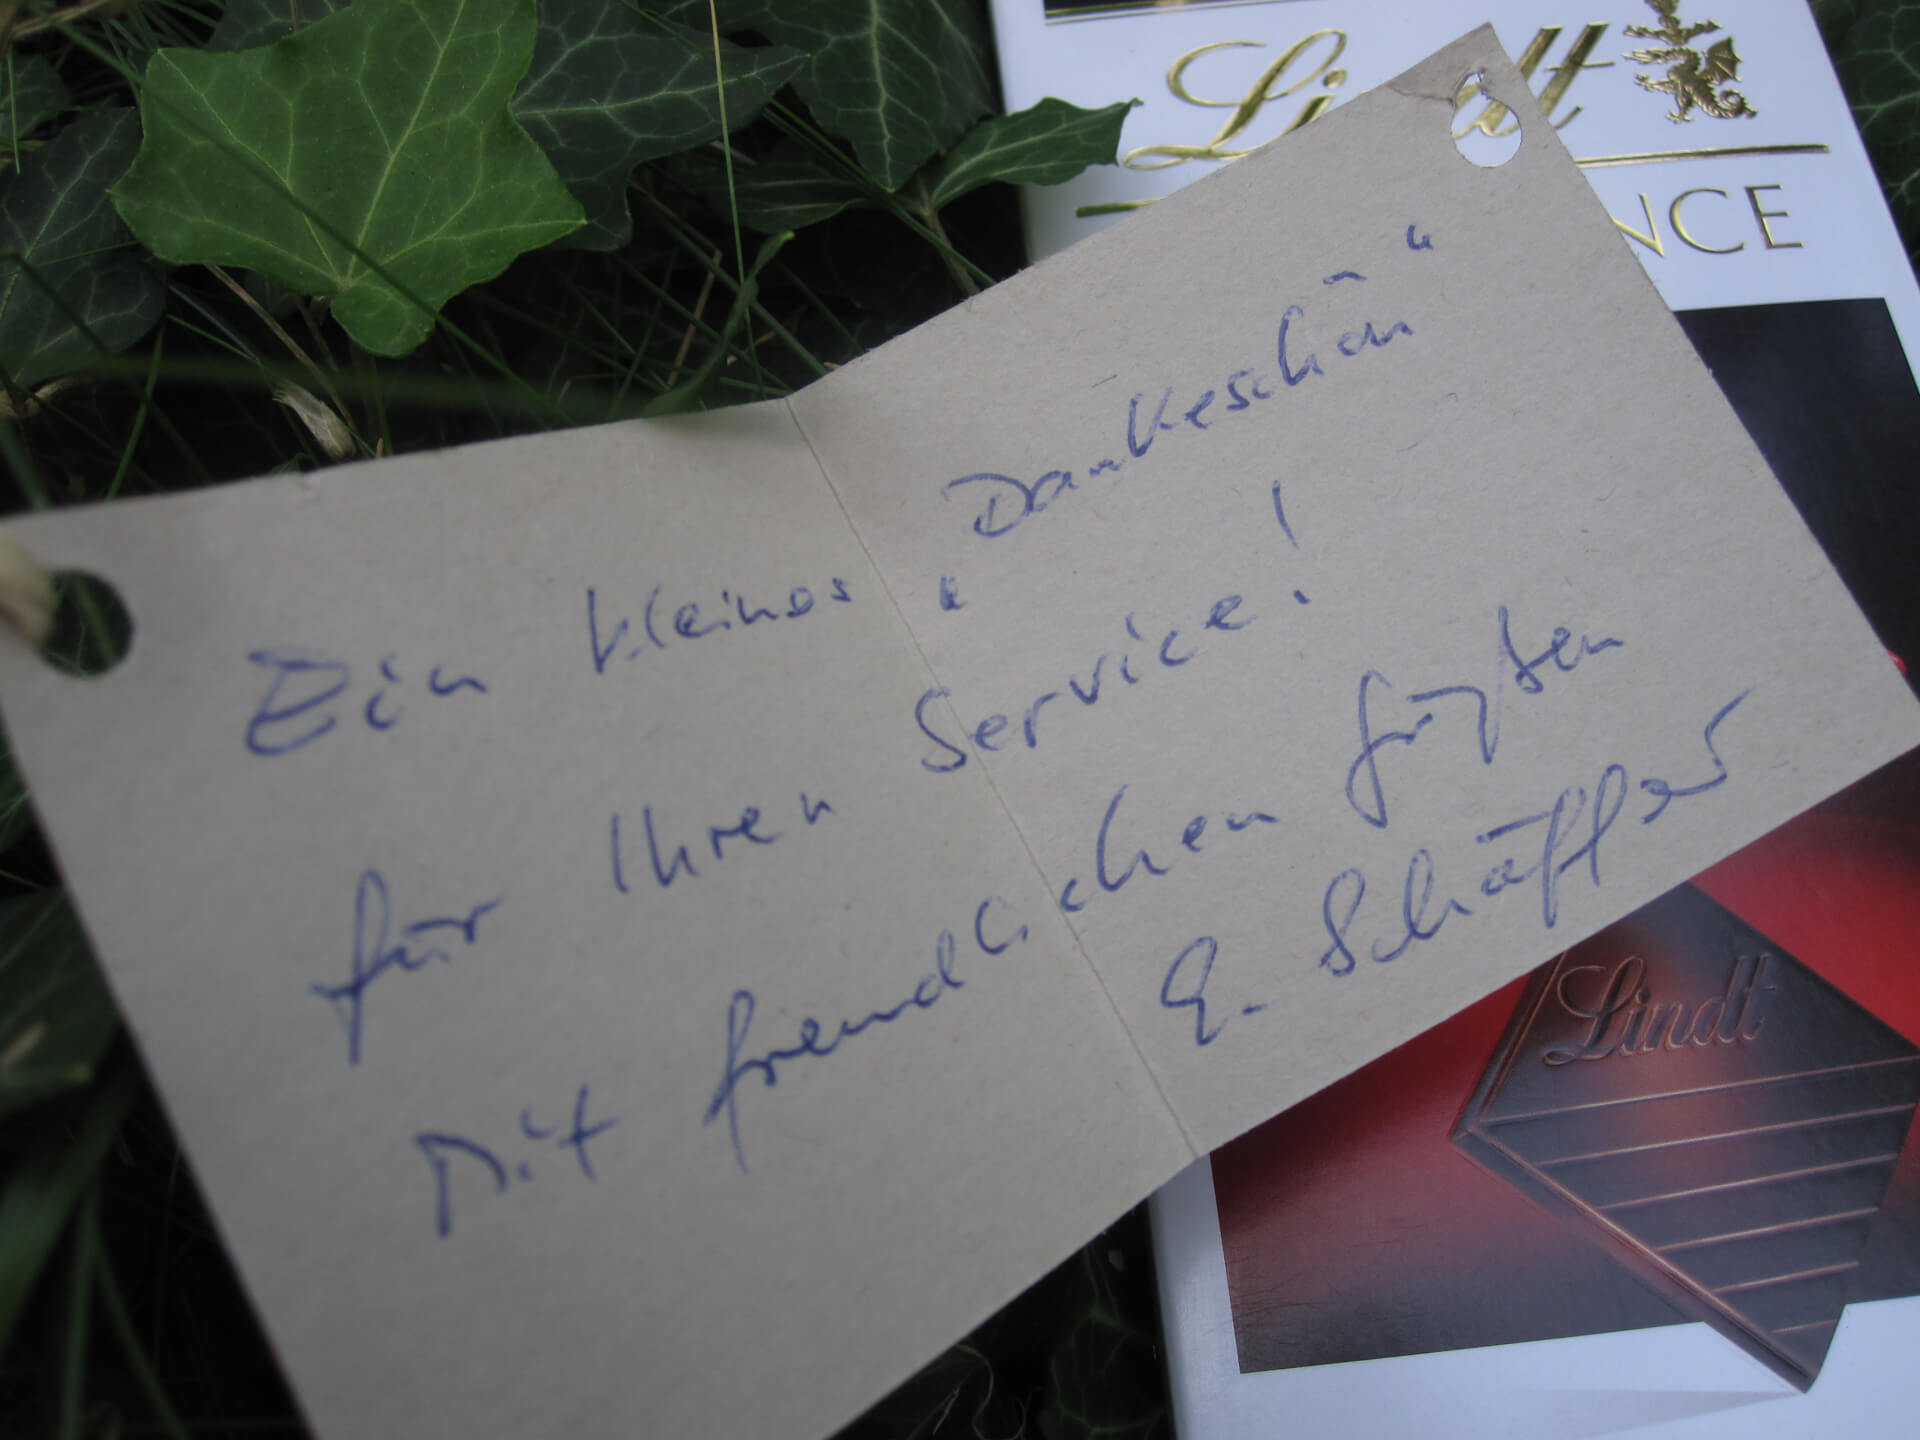 Lindt
NCE
Ein kleines „Dankeschön“
für Ihren Service!
Mit freundlichen Grüßen
E. Schäffer
Lindt